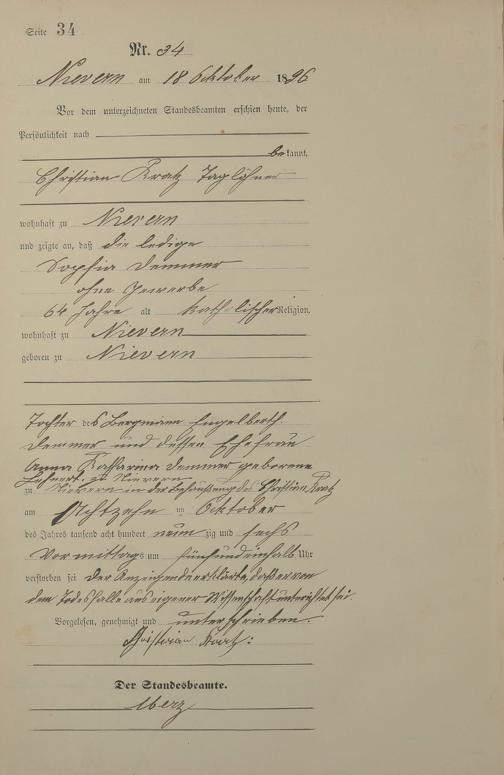 Seite 34
Nr. 34
Nievern am 18 Oktober 1896
Vor dem unterzeichneten Standesbeamten erschien heute, der
Persönlichkeit nach
bekannt,
Christian Kratz Taglöhner
wohnhaft zu Nievern
und zeigte an, daß die ledige
Sophia Demmer
ohne Gewerbe
64 Jahre alt katholischer Religion,
wohnhaft zu Nievern
geboren zu Nievern
Tochter des Bergmann Engelberth
Demmer und dessen Ehefrau
Anna Katharina Demmer geborene
zu Nievern
zu Nievern in der Behausung des Christian Kratz
am Achtzehn ten Oktober
des Jahres tausend acht hundert neun zig und sechs
Vormittags um fünfundeinhalb Uhr
verstorben sei der Anzeigende erklärte, daß er von
dem Todesfalle aus eigener Wissenschaft unterrichtet sei.
Vorgelesen, genehmigt und unterschrieben.
Christian Kratz:
Der Standesbeamte.
Merz